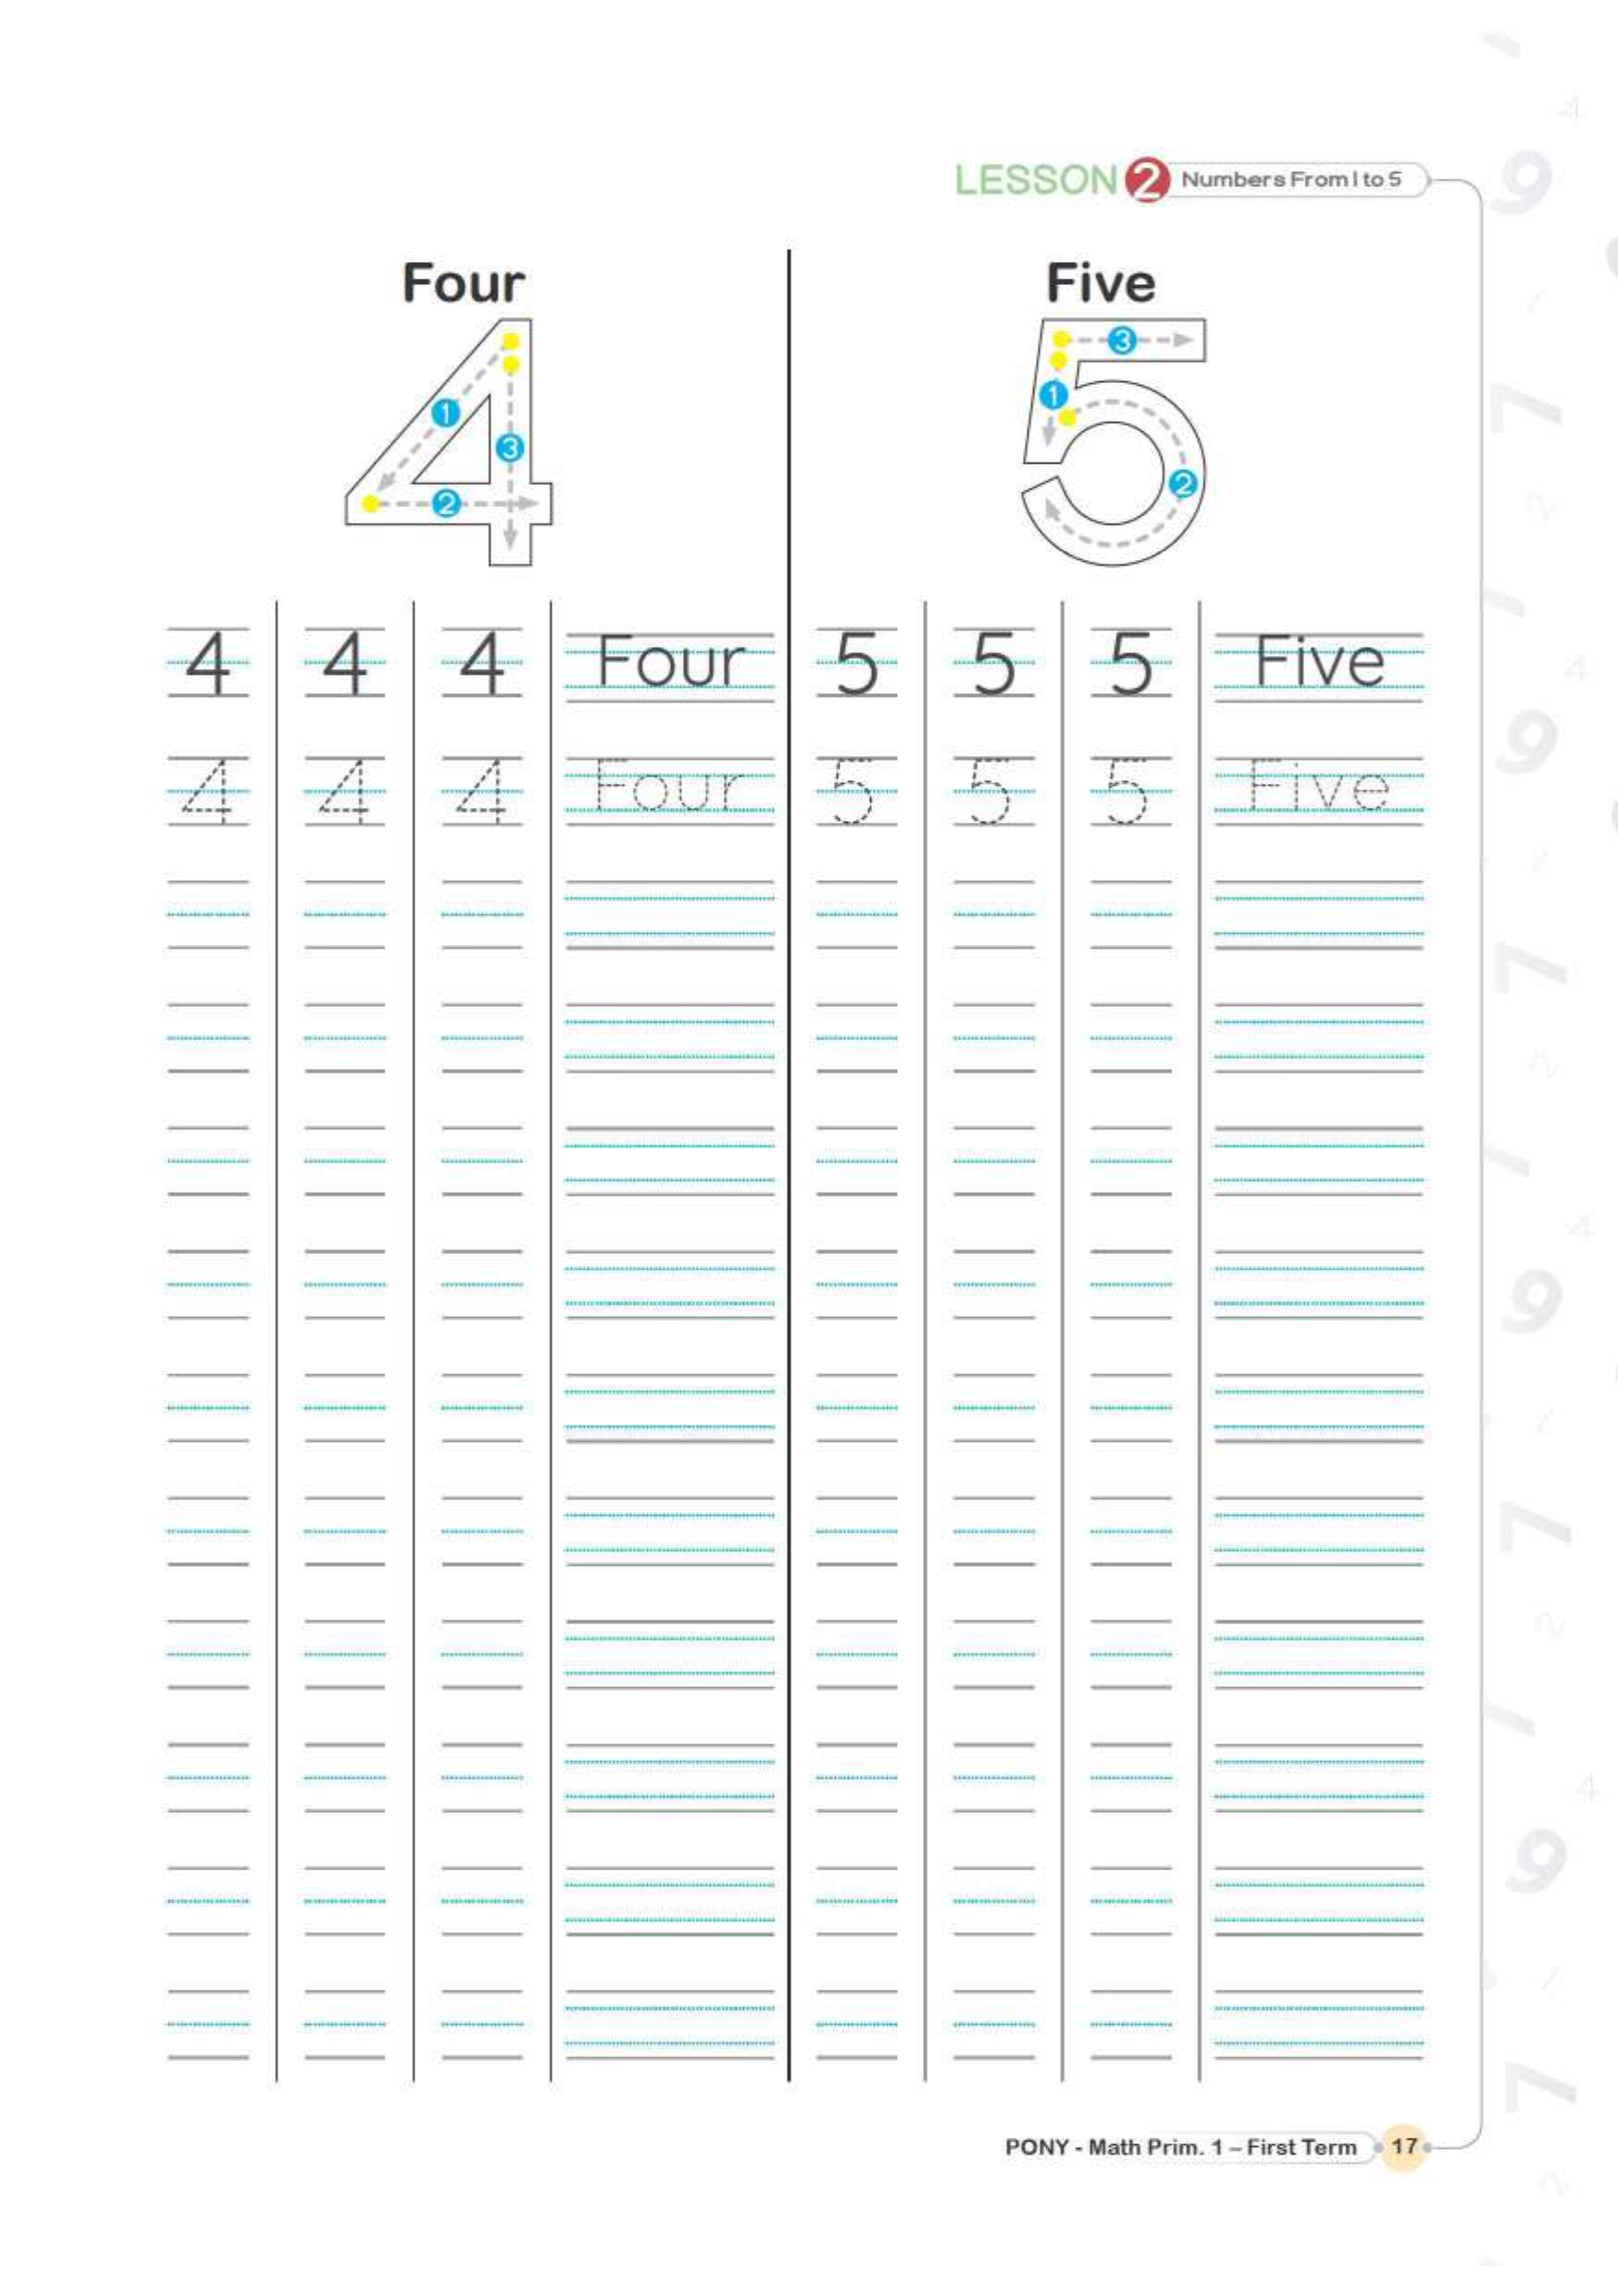 LESSON 2 Numbers From 1 to 5
Four
Five
1
2
3
3
1
2
4 4 4 Four 5 5 5 Five
4 4 4 Four 5 5 5 Five
PONY - Math Prim. 1 – First Term 17